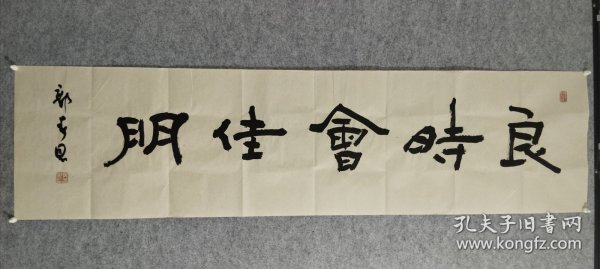 良時會佳朋
孔夫子旧書网
www.kongfz.com